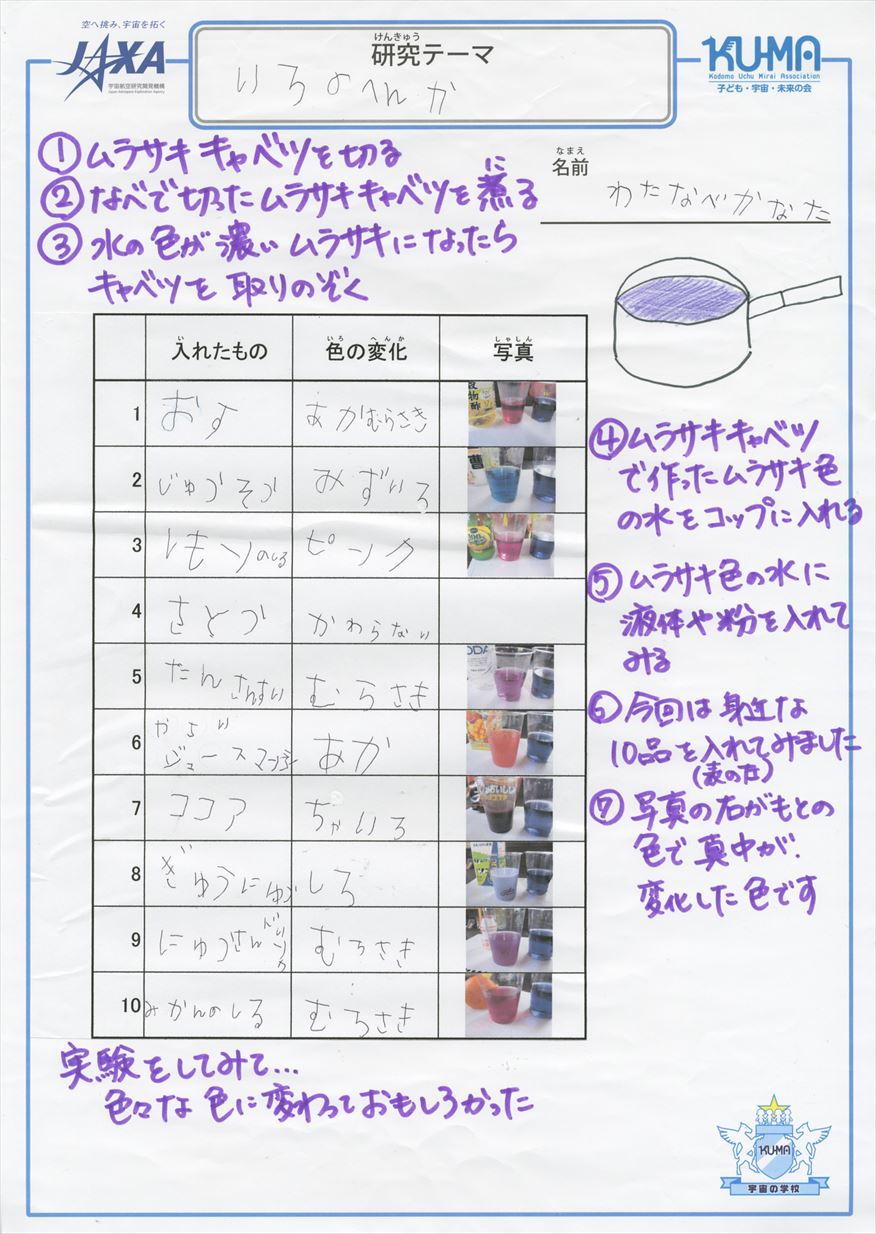 空へ挑み、宇宙を拓く
JAXA
宇宙航空研究開発機構
Japan Aerospace Exploration Agency
けんきゅう
研究テーマ
いろのへんか
KU-MA
Kodomo Uchu Mirai Association
子ども・宇宙・未来の会
①ムラサキキャベツを切る
なまえ
名前
わたなべかなた
②なべで切ったムラサキキャベツを煮る
に
③水の色が濃いムラサキになったら
キャベツを取りのぞく
入れたもの 色の変化 写真
い いろ へんか しゃしん
1 おす あかむらさき
2 じゅうそう みずいろ
3 レモンのしる ピンク
4 さとう かわらない
5 たんさんすい むらさき
6 やさい
ジュース あか
7 ココア ちゃいろ
8 ぎゅうにゅう しろ
9 にゅうさん むらさき
10 みかんのしる むらさき
④ムラサキキャベツ
で作ったムラサキ色
の水をコップに入れる
⑤ムラサキ色の水に
液体や粉を入れて
みる
⑥今回は身近な
10品を入れてみました
(表の左)
⑦写真の右がもとの
色で真中が、
変化した色です
実験をしてみて…
色々な色に変わっておもしろかった
KU-MA
宇宙の学校